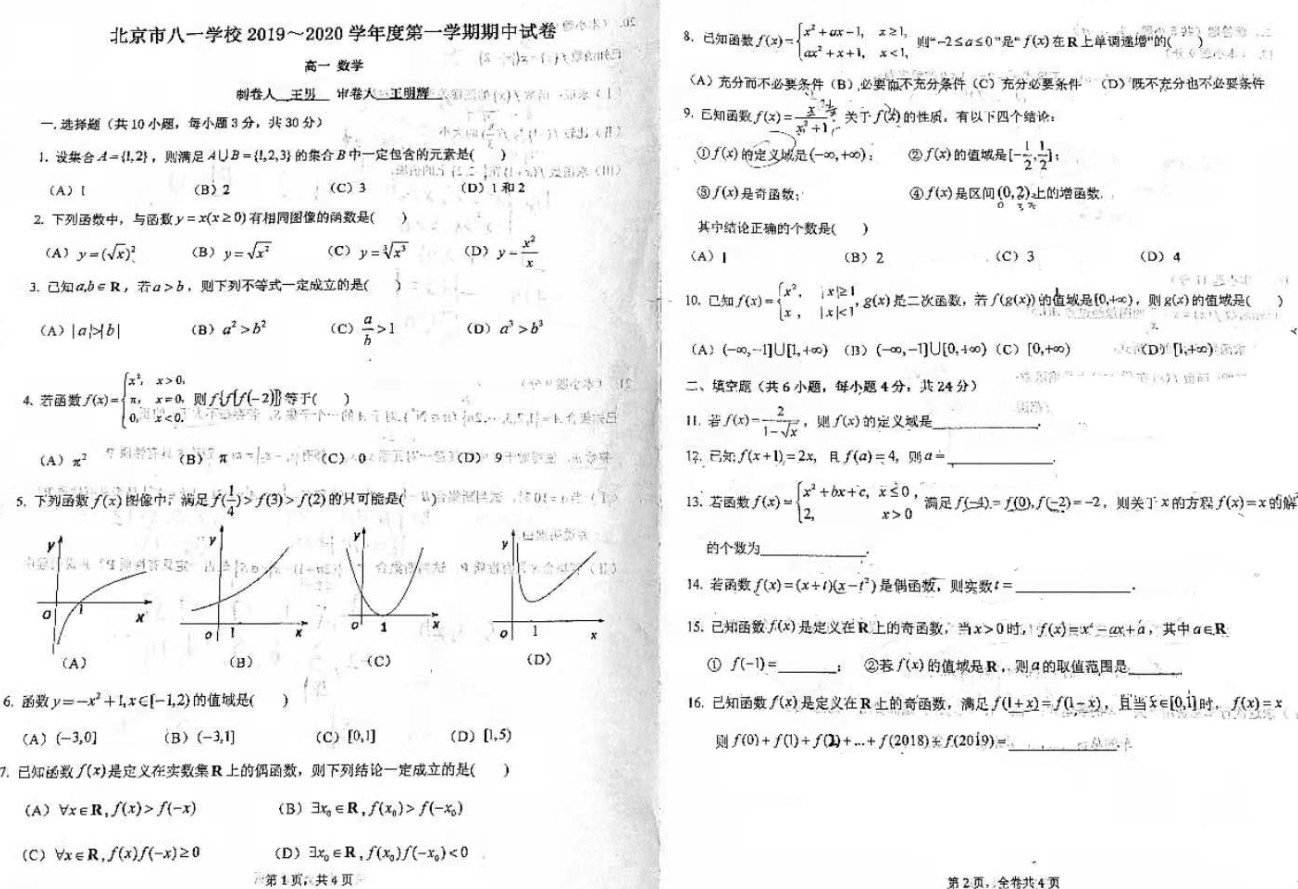 北京市八一学校 2019～2020 学年度第一学期期中试卷
高一 数学
制卷人 王男 审卷人 王明辉
一.选择题（共 10 小题，每小题 3 分，共 30 分）
1. 设集合 A={1,2}，则满足 A∪B={1,2,3} 的集合 B 中一定包含的元素是( )
（A）1 （B）2 （C）3 （D）1 和 2
2. 下列函数中，与函数 y=x(x≥0) 有相同图像的函数是( )
（A）y=(√x)² （B）y=√x² （C）y=∛x³ （D）y=x²/x
3. 已知 a,b∈R，若 a>b，则下列不等式一定成立的是( )
（A）|a|>|b| （B）a²>b² （C）a/b>1 （D）a³>b³
4. 若函数 f(x)={x², x>0, π, x=0, 0, x<0. 则 f{f[f(-2)]} 等于( )
（A）π² （B）π （C）0 （D）9
5. 下列函数 f(x) 图像中，满足 f(1/4)>f(3)>f(2) 的只可能是( )
y y y y
o 1 x o 1 x o 1 x o 1 x
（A） （B） （C） （D）
6. 函数 y=-x²+1,x∈[-1,2) 的值域是( )
（A）(-3,0] （B）(-3,1] （C）[0,1] （D）[1,5)
7. 已知函数 f(x) 是定义在实数集 R 上的偶函数，则下列结论一定成立的是( )
（A）∀x∈R, f(x)>f(-x) （B）∃x₀∈R, f(x₀)>f(-x₀)
（C）∀x∈R, f(x)f(-x)≥0 （D）∃x₀∈R, f(x₀)f(-x₀)<0
第 1 页，共 4 页
8. 已知函数 f(x)={x²+ax-1, x≥1, ax²+x+1, x<1, 则“-2≤a≤0”是“f(x) 在 R 上单调递增”的( )
（A）充分而不必要条件（B）必要而不充分条件（C）充分必要条件 （D）既不充分也不必要条件
9. 已知函数 f(x)=x/(x²+1)，关于 f(x) 的性质，有以下四个结论：
①f(x) 的定义域是(-∞,+∞)； ②f(x) 的值域是[-1/2,1/2]；
③f(x) 是奇函数； ④f(x) 是区间(0,2)上的增函数.
其中结论正确的个数是( )
（A）1 （B）2 （C）3 （D）4
10. 已知 f(x)={x², |x|≥1 x, |x|<1, g(x) 是二次函数，若 f(g(x)) 的值域是[0,+∞)，则 g(x) 的值域是( )
（A）(-∞,-1]∪[1,+∞) （B）(-∞,-1]∪[0,+∞) （C）[0,+∞) （D）[1,+∞)
二、填空题（共 6 小题，每小题 4 分，共 24 分）
11. 若 f(x)=2/(1-√x)，则 f(x) 的定义域是______.
12. 已知 f(x+1)=2x，且 f(a)=4，则 a=______.
13. 若函数 f(x)={x²+bx+c, x≤0, 2, x>0 满足 f(-4)=f(0), f(-2)=-2，则关于 x 的方程 f(x)=x 的解
的个数为______.
14. 若函数 f(x)=(x+t)(x-t²) 是偶函数，则实数 t=______.
15. 已知函数 f(x) 是定义在 R 上的奇函数，当 x>0 时，f(x)=x²-ax+a，其中 a∈R
① f(-1)=______； ②若 f(x) 的值域是 R，则 a 的取值范围是______
16. 已知函数 f(x) 是定义在 R 上的奇函数，满足 f(1+x)=f(1-x)，且当 x∈[0,1] 时，f(x)=x
则 f(0)+f(1)+f(2)+...+f(2018)+f(2019)=______.
第 2 页，全卷共 4 页